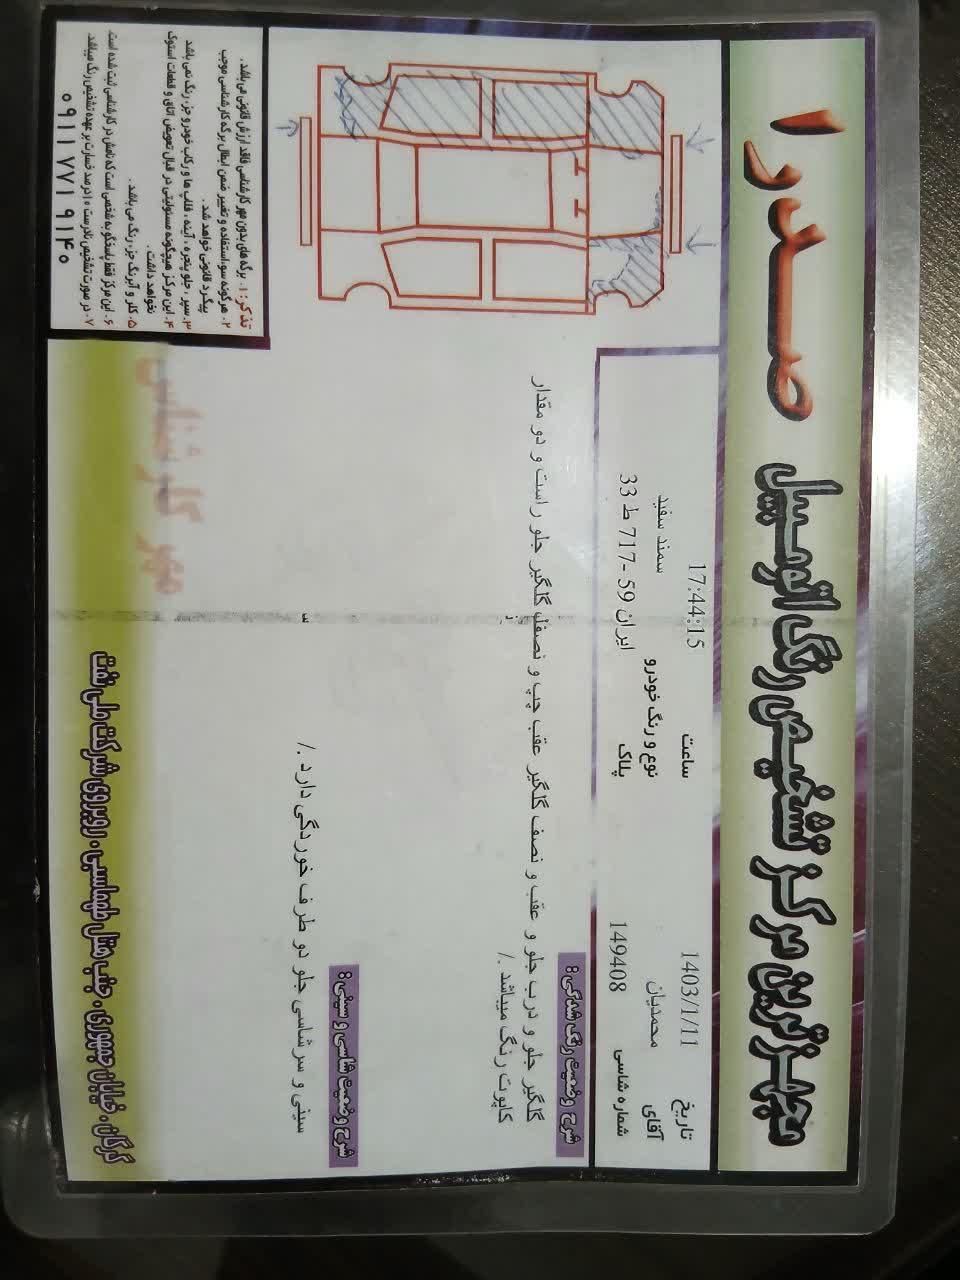 صدرا مجهزترین مرکز تشخیص رنگ اتومبیل
تاریخ 1403/1/11 ساعت 17:44:15
آقای محمدیان نوع و رنگ خودرو سمند سفید
شماره شاسی 149408 پلاک ایران 59 - 717 ط 33
شرح وضعیت رنگ شدگی :
گلگیر جلو و درب جلو و عقب و نصف گلگیر عقب چپ و نصف گلگیر جلو راست و دو مقدار
کاپوت رنگ میباشد ./
شرح وضعیت شاسی و سینی :
سینی و سر شاسی جلو دو طرف خوردگی دارد ./
مهر کارشناس
تذکر : ۱. برگه های بدون مهر کارشناسی فاقد ارزش قانونی می باشد.
۲. هرگونه سوء استفاده و تغییر ضمن ابطال برگه کارشناسی موجب
پیگرد قانونی خواهد شد.
۳. سپر ، جلو پنجره ، آینه ، قلاپ ها و رکاب خودرو جزء رنگ نمی باشد
۴. این مرکز هیچگونه مسئولیتی در قبال تعویض اتاق و قطعات استوک
نخواهد داشت.
۵. کلر و آبرنگ جزء رنگ می باشد.
۶. این مرکز فقط پاسخگو به شخصی است که نامش در کارشناسی ثبت شده است
۷. در صورت تشخیص نادرست ۱۰ درصد خسارت بر عهده تشخیص رنگ میباشد
۰۹۱۱ ۷۷۱ ۹۱۴۰
گرگان ، خیابان جمهوری ، جنب هتل طهماسبی ، روبروی شرکت ملی نفت